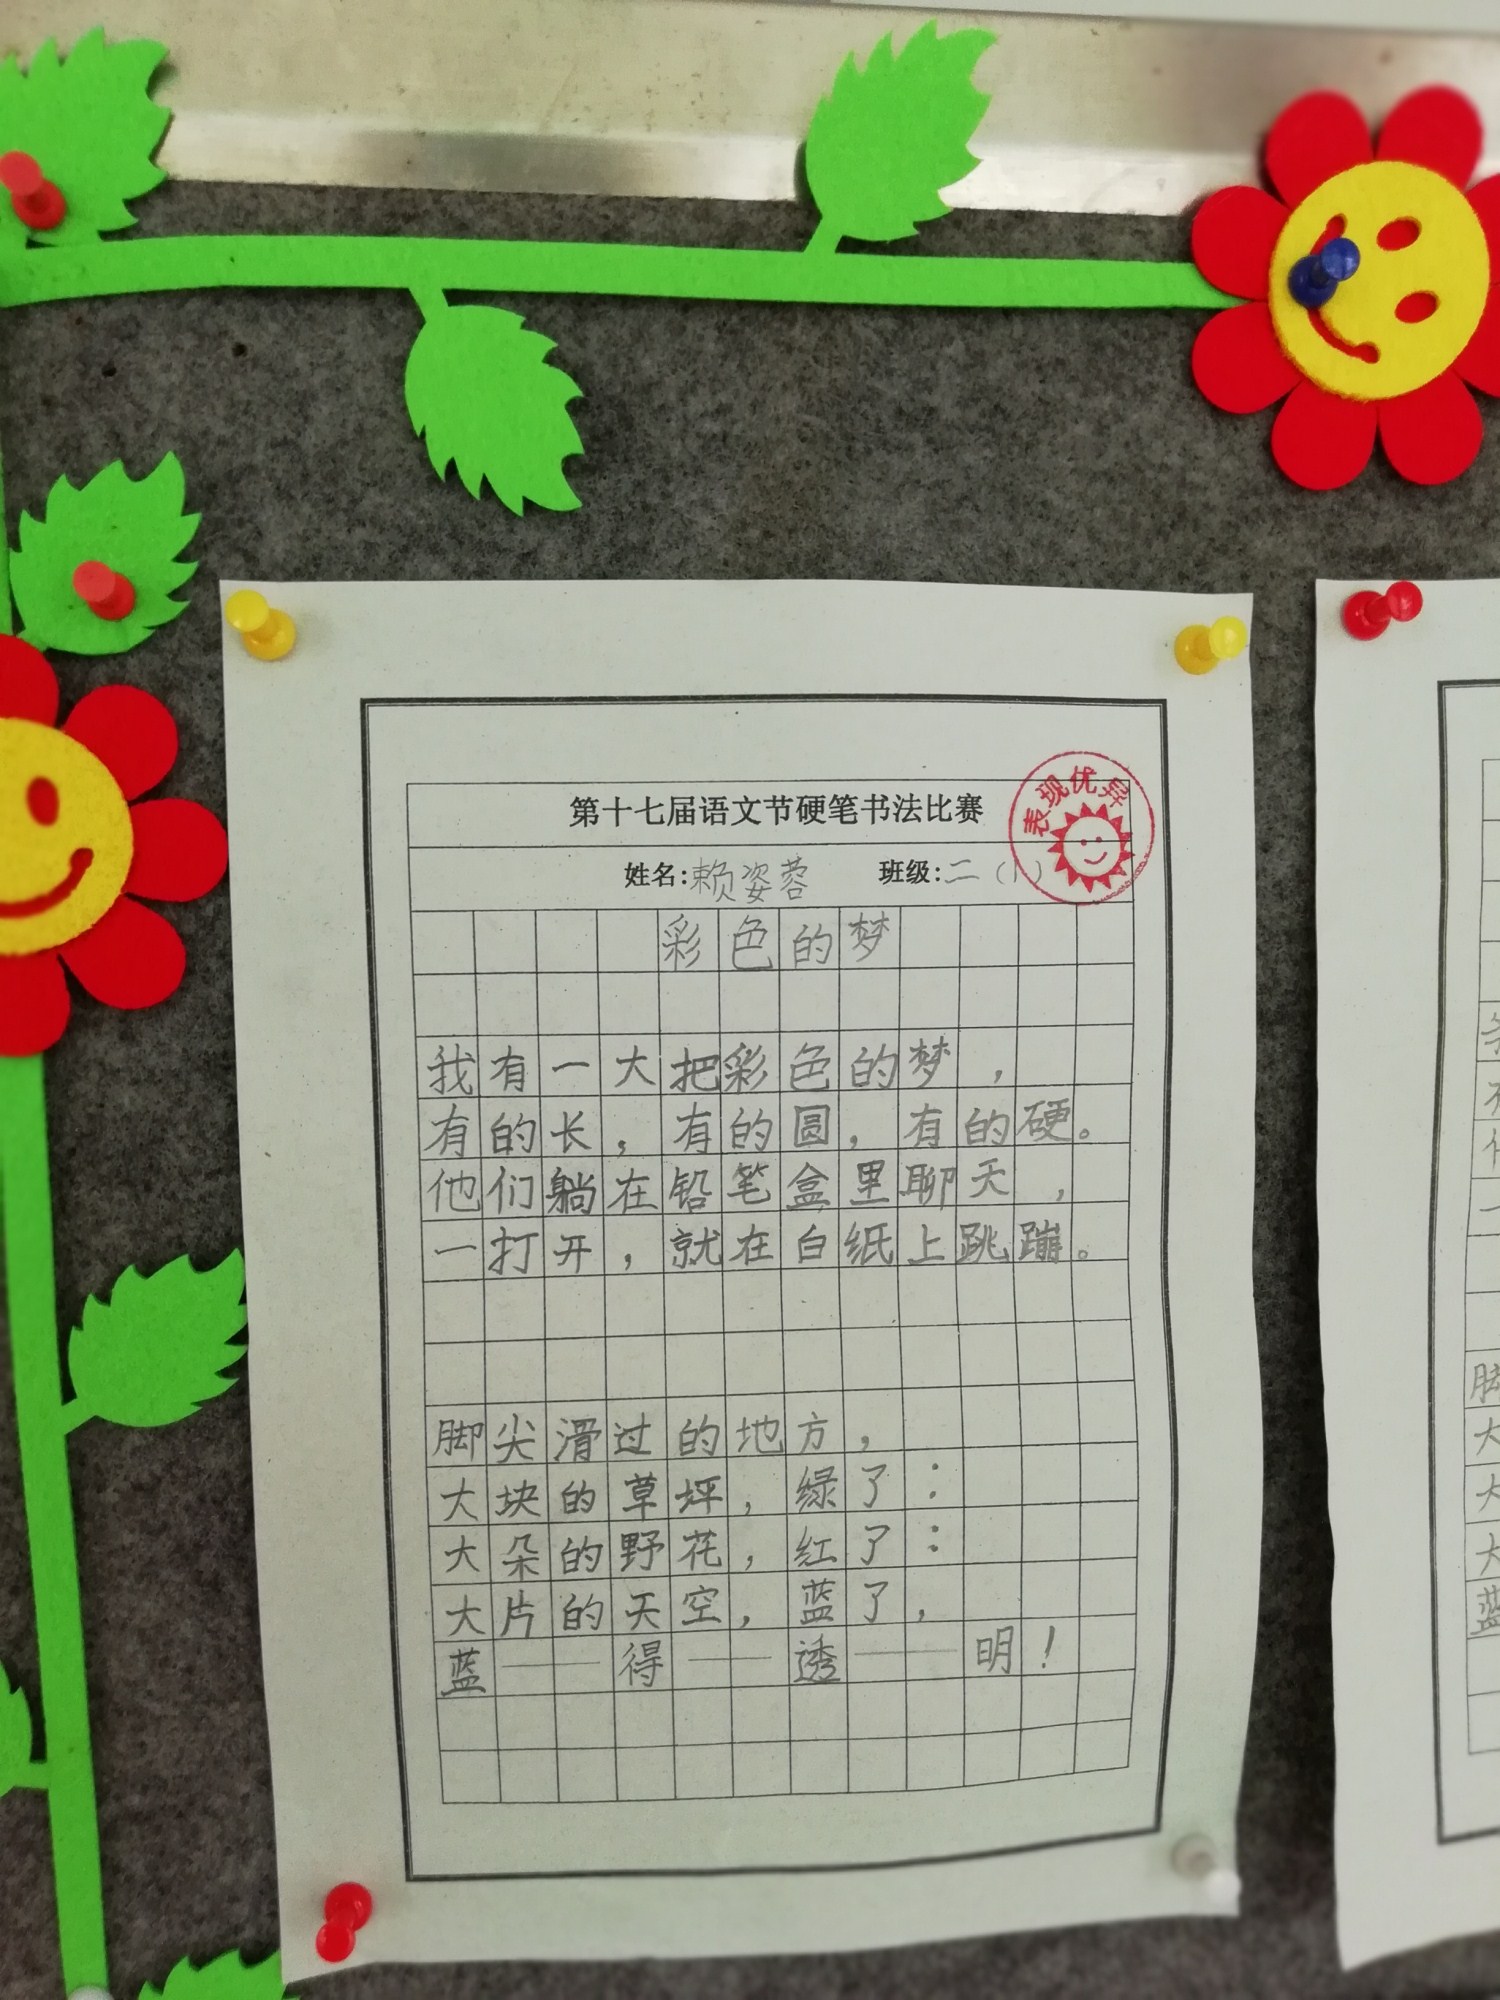 第十七届语文节硬笔书法比赛
表现优异
姓名:赖姿蓉 班级:二（1）
彩色的梦
我有一大把彩色的梦，
有的长，有的圆，有的硬。
他们躺在铅笔盒里聊天，
一打开，就在白纸上跳蹦。
脚尖滑过的地方，
大块的草坪，绿了：
大朵的野花，红了：
大片的天空，蓝了，
蓝——得——透——明！
脚
大
大
大
蓝